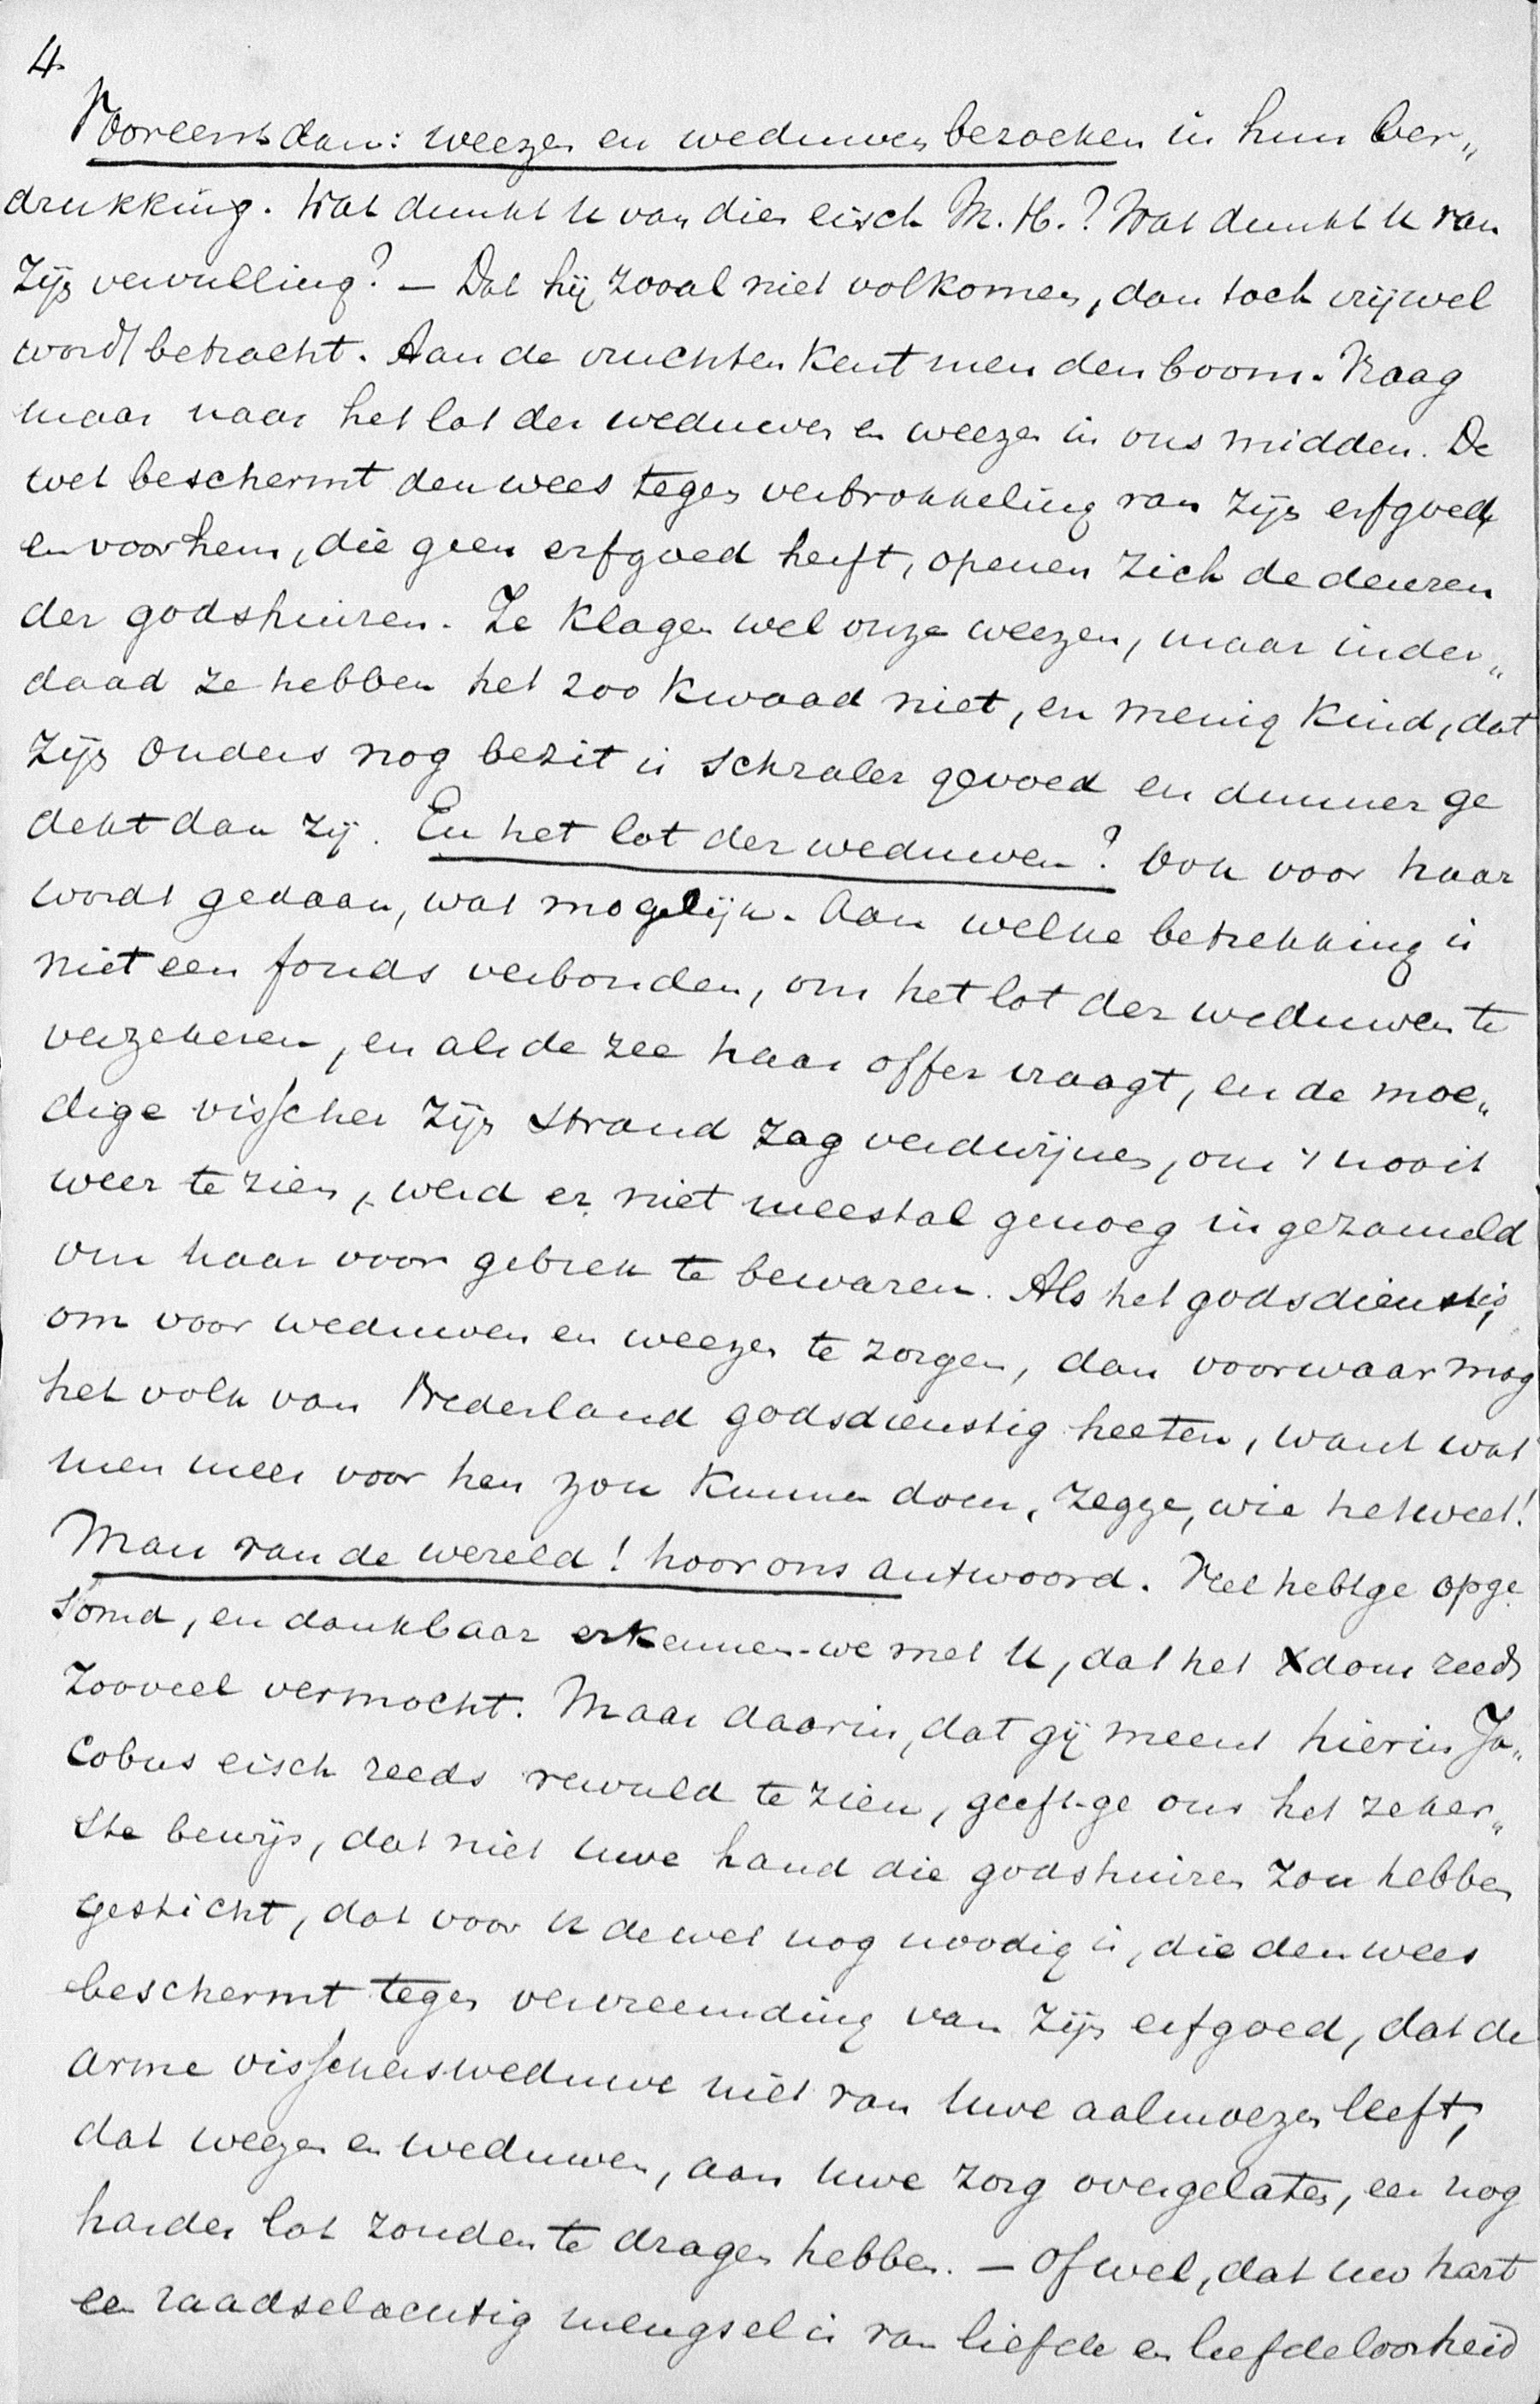 4.
Vooreerst dan: weezen en weduwen bezoeken in hun ver„
drukking. Wat dunkt U van dien eisch M. H.? Wat dunkt U van
zijn vervulling? — Dat hij zooal niet volkomen, dan toch vrijwel
wordt betracht. Aan de vruchten kent men den boom. Vraag
maar naar het lot der weduwen en weezen in ons midden. De
wet beschermt den wees tegen verbrokkeling van zijn erfgoed,
en voor hem, die geen erfgoed heeft, openen zich de deuren
der godshuizen. Ze klagen wel onze weezen, maar inder„
daad ze hebben het zoo kwaad niet, en menig kind, dat
zijn ouders nog bezit is schraler gevoed en dunner ge
dekt dan zij. En het lot der weduwen? Ook voor haar
wordt gedaan, wat mogelijk. Aan welke betrekking is
niet een fonds verbonden, om het lot der weduwen te
verzekeren, en als de zee haar offer vraagt, en de moe„
dige visscher zijn strand zag verdwijnen, om 't nooit
weer te zien, werd er niet meestal genoeg ingezameld
om haar voor gebrek te bewaren. Als het godsdienstig is,
om voor weduwen en weezen te zorgen, dan voorwaar mag
het volk van Nederland godsdienstig heeten, want wat
men meer voor hen zou kunnen doen, zegge, wie het weet!
Man van de wereld! hoor ons antwoord. Veel hebt ge opge
somd, en dankbaar erkennen we met U, dat het Xdom reeds
zooveel vermocht. Maar daarin, dat gij meent hierin Ja„
cobus eisch reeds vervuld te zien, geeft-ge ons het zeker„
ste bewijs, dat niet uwe hand die godshuizen zou hebben
gesticht, dat voor U de wet nog noodig is, die den wees
beschermt tegen vervreemding van zijn erfgoed, dat de
arme visschersweduwe niet van uwe aalmoezen leeft,
dat weezen en weduwen, aan uwe zorg overgelaten, een nog
harder lot zouden te dragen hebben. — Of wel, dat uw hart
een raadselachtig mengsel is van liefde en liefdeloosheid